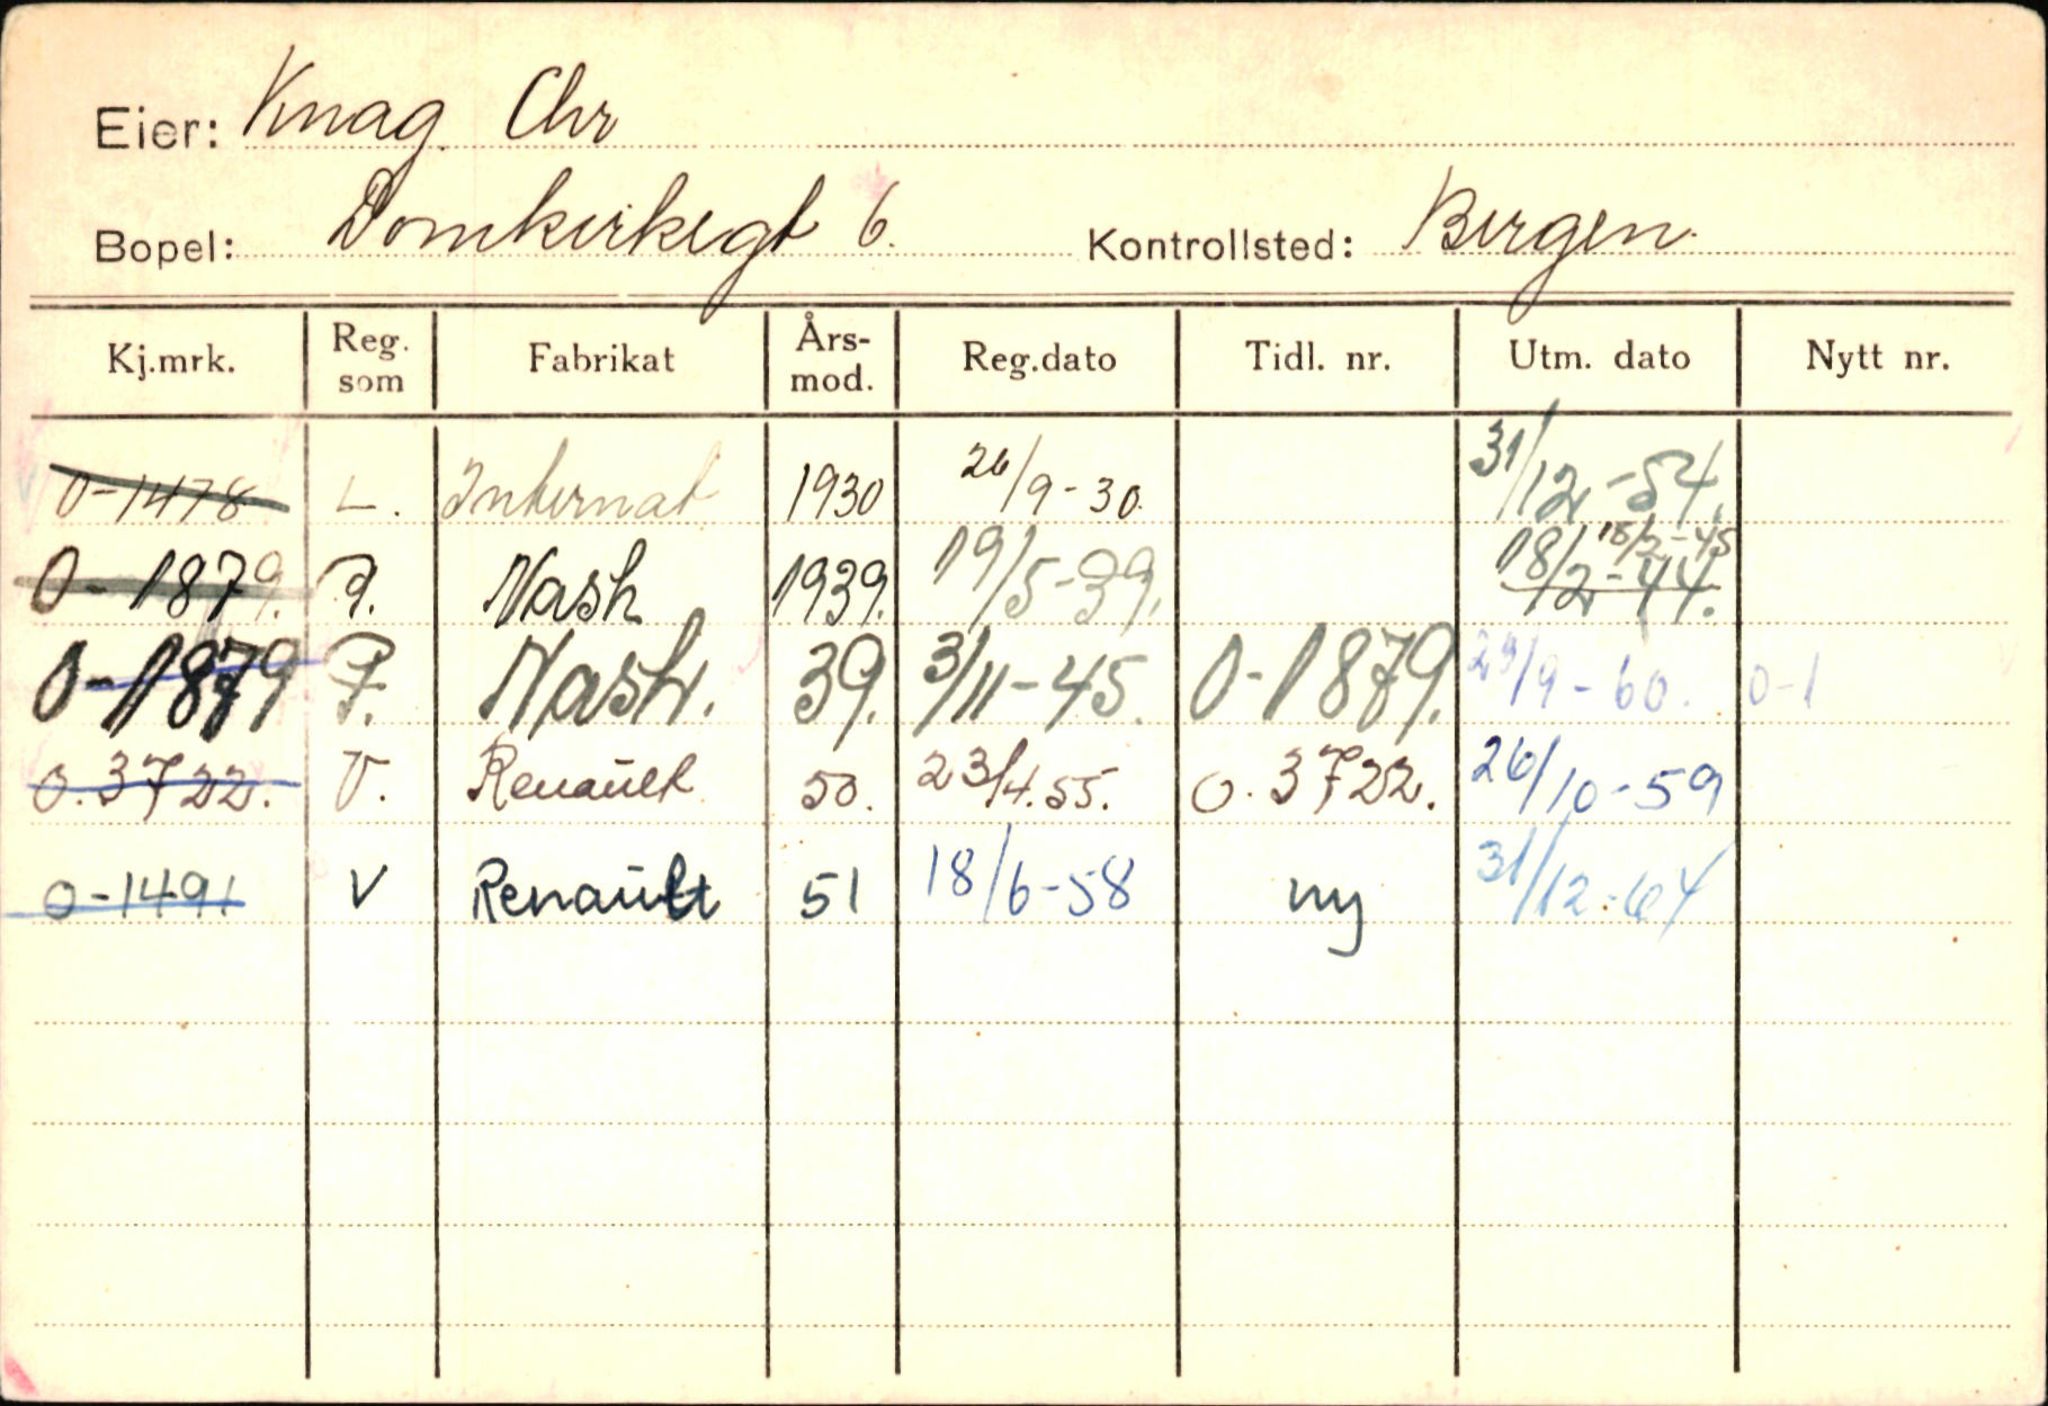 Eier: Knag Chr
Bopel: Domkirkegt 6. Kontrollsted: Bergen.
Kj.mrk. Reg. som Fabrikat Års-mod. Reg.dato Tidl. nr. Utm. dato Nytt nr.
O-1478 L. Internat 1930 26/9-30. 31/12-54.
O-1879. P. Nash 1939. 19/5-39. 18/2-44. 15/2-45
O-1879 P. Nash. 39. 3/11-45. O-1879. 29/9-60. O-1
O.3722. V. Renault 50. 23/4.55. O.3722. 26/10-59
O-1491 V Renault 51 18/6-58 ny 31/12-64